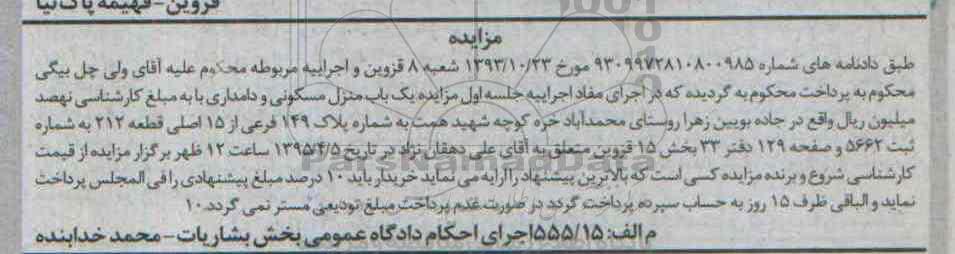 قزوین-فهیمه پاک نیا
مزایده
طبق دادنامه های شماره ۹۳۰۹۹۷۲۸۱۰۸۰۰۹۸۵ مورخ ۱۳۹۳/۱۰/۲۳ شعبه ۸ قزوین و اجراییه مربوطه محکوم علیه آقای ولی چل بیگی
محکوم به پرداخت محکوم به گردیده که در اجرای مفاد اجراییه جلسه اول مزایده یک باب منزل مسکونی و دامداری با به مبلغ کارشناسی نهصد
میلیون ریال واقع در جاده بویین زهرا روستای محمدآباد خره کوچه شهید همت به شماره پلاک ۱۴۹ فرعی از ۱۵ اصلی قطعه ۲۱۲ به شماره
ثبت ۵۶۶۲ و صفحه ۱۲۹ دفتر ۳۳ بخش ۱۵ قزوین متعلق به آقای علی دهقان نژاد در تاریخ ۱۳۹۵/۴/۵ ساعت ۱۲ ظهر برگزار مزایده از قیمت
کارشناسی شروع و برنده مزایده کسی است که بالاترین پیشنهاد را ارایه می نماید خریدار باید ۱۰ درصد مبلغ پیشنهادی را فی المجلس پرداخت
نماید و الباقی ظرف ۱۵ روز به حساب سپرده پرداخت گردد در صورت عدم پرداخت مبلغ تودیعی مستر نمی گردد.۱۰
م الف: ۵۵۵/۱۵اجرای احکام دادگاه عمومی بخش بشاریات-محمد خدابنده